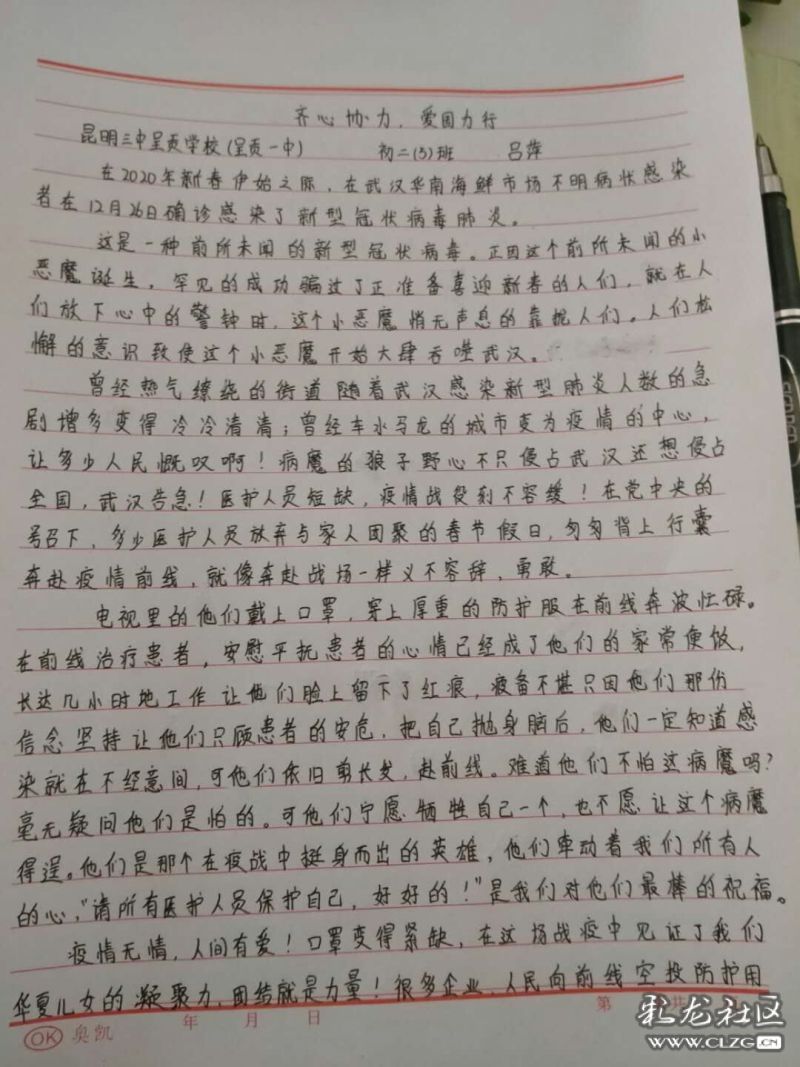 齐心协力,爱国力行
昆明三中呈贡学校(呈贡一中) 初二(5)班 吕萍
在2020年新春伊始之际,在武汉华南海鲜市场不明病状感染
者在12月26日确诊感染了新型冠状病毒肺炎。
这是一种前所未闻的新型冠状病毒。正因这个前所未闻的小
恶魔诞生,罕见的成功骗过了正准备喜迎新春的人们,就在人
们放下心中的警钟时,这个小恶魔悄无声息的靠拢人们。人们松
懈的意识致使这个小恶魔开始大肆吞噬武汉。
曾经热气缭绕的街道随着武汉感染新型肺炎人数的急
剧增多变得冷冷清清;曾经车水马龙的城市变为疫情的中心,
让多少人民慨叹啊!病魔的狼子野心不只侵占武汉还想侵占
全国,武汉告急!医护人员短缺,疫情战役刻不容缓!在党中央的
号召下,多少医护人员放弃与家人团聚的春节假日,匆匆背上行囊
奔赴疫情前线,就像奔赴战场一样义不容辞,勇敢。
电视里的他们戴上口罩,穿上厚重的防护服在前线奔波忙碌。
在前线治疗患者,安慰平抚患者的心情已经成了他们的家常便饭,
长达几小时地工作让他们脸上留下了红痕,疲备不堪只因他们那份
信念坚持让他们只顾患者的安危,把自己抛身脑后,他们一定知道感
染就在不经意间,可他们依旧剪长发,赴前线。难道他们不怕这病魔吗?
毫无疑问他们是怕的。可他们宁愿牺牲自己一个,也不愿让这个病魔
得逞。他们是那个在疫战中挺身而出的英雄,他们牵动着我们所有人
的心,"请所有医护人员保护自己,好好的!"是我们对他们最棒的祝福。
疫情无情,人间有爱!口罩变得紧缺,在这场战疫中见证了我们
华夏儿女的凝聚力,团结就是力量!很多企业、人民向前线空投防护用
OK 奥凯 年 月 日 第 共
彩龙社区
WWW.CLZG.CN